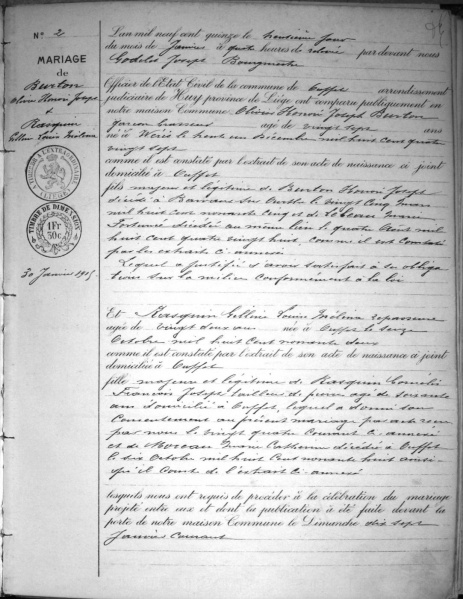 N° 2
MARIAGE
de
Burton
Olivier Honoré Joseph
&
Rasquin
TIMBRE DE DIMENSION
1 Fr
50c
30 Janvier 1915
L'an mil neuf cent quinze le trentième jour
du mois de Janvier à quatre heures de relevée par devant nous
Godelet Joseph Bourgmestre
Officier de l'Etat Civil de la commune de Ouffet arrondissement
judiciaire de Huy province de Liége ont comparu publiquement en
notre maison Commune Olivier Honoré Joseph Burton
garçon brasseur âgé de vingt sept ans
né à le trente un décembre mil huit cent quatre
vingt sept
comme il est constaté par l'extrait de son acte de naissance ci joint
domicilié à Ouffet
fils majeur et légitime de Burton Honoré Joseph
décédé à le vingt cinq Mars
mil huit cent nonante cinq et de Marie
décédée au même lieu le quatre Août mil
huit cent quatre vingt huit, comme il est constaté
par les extraits ci annexés
Lequel a justifié avoir satisfait à ses obliga
tions sur la milice conformément à la loi
Et Rasquin Louise repasseuse
âgée de vingt deux ans née à Ouffet le seize
Octobre mil huit cent nonante deux
comme il est constaté par l'extrait de son acte de naissance ci joint
domiciliée à Ouffet
fille majeure et légitime de Rasquin
François Joseph tailleur de pierre âgé de soixante
ans domicilié à Ouffet, lequel a donné son
Consentement au présent mariage par acte reçu
par nous le vingt quatre Courant ci annexé
et de Moreau Marie Catherine décédée à Ouffet
le six Octobre mil huit Cent nonante huit ainsi
qu'il Conste de l'extrait ci annexé
lesquels nous ont requis de procéder à la célébration du mariage
projeté entre eux et dont la publication a été faite devant la
porte de notre maison Commune le Dimanche dix sept
Janvier Courant